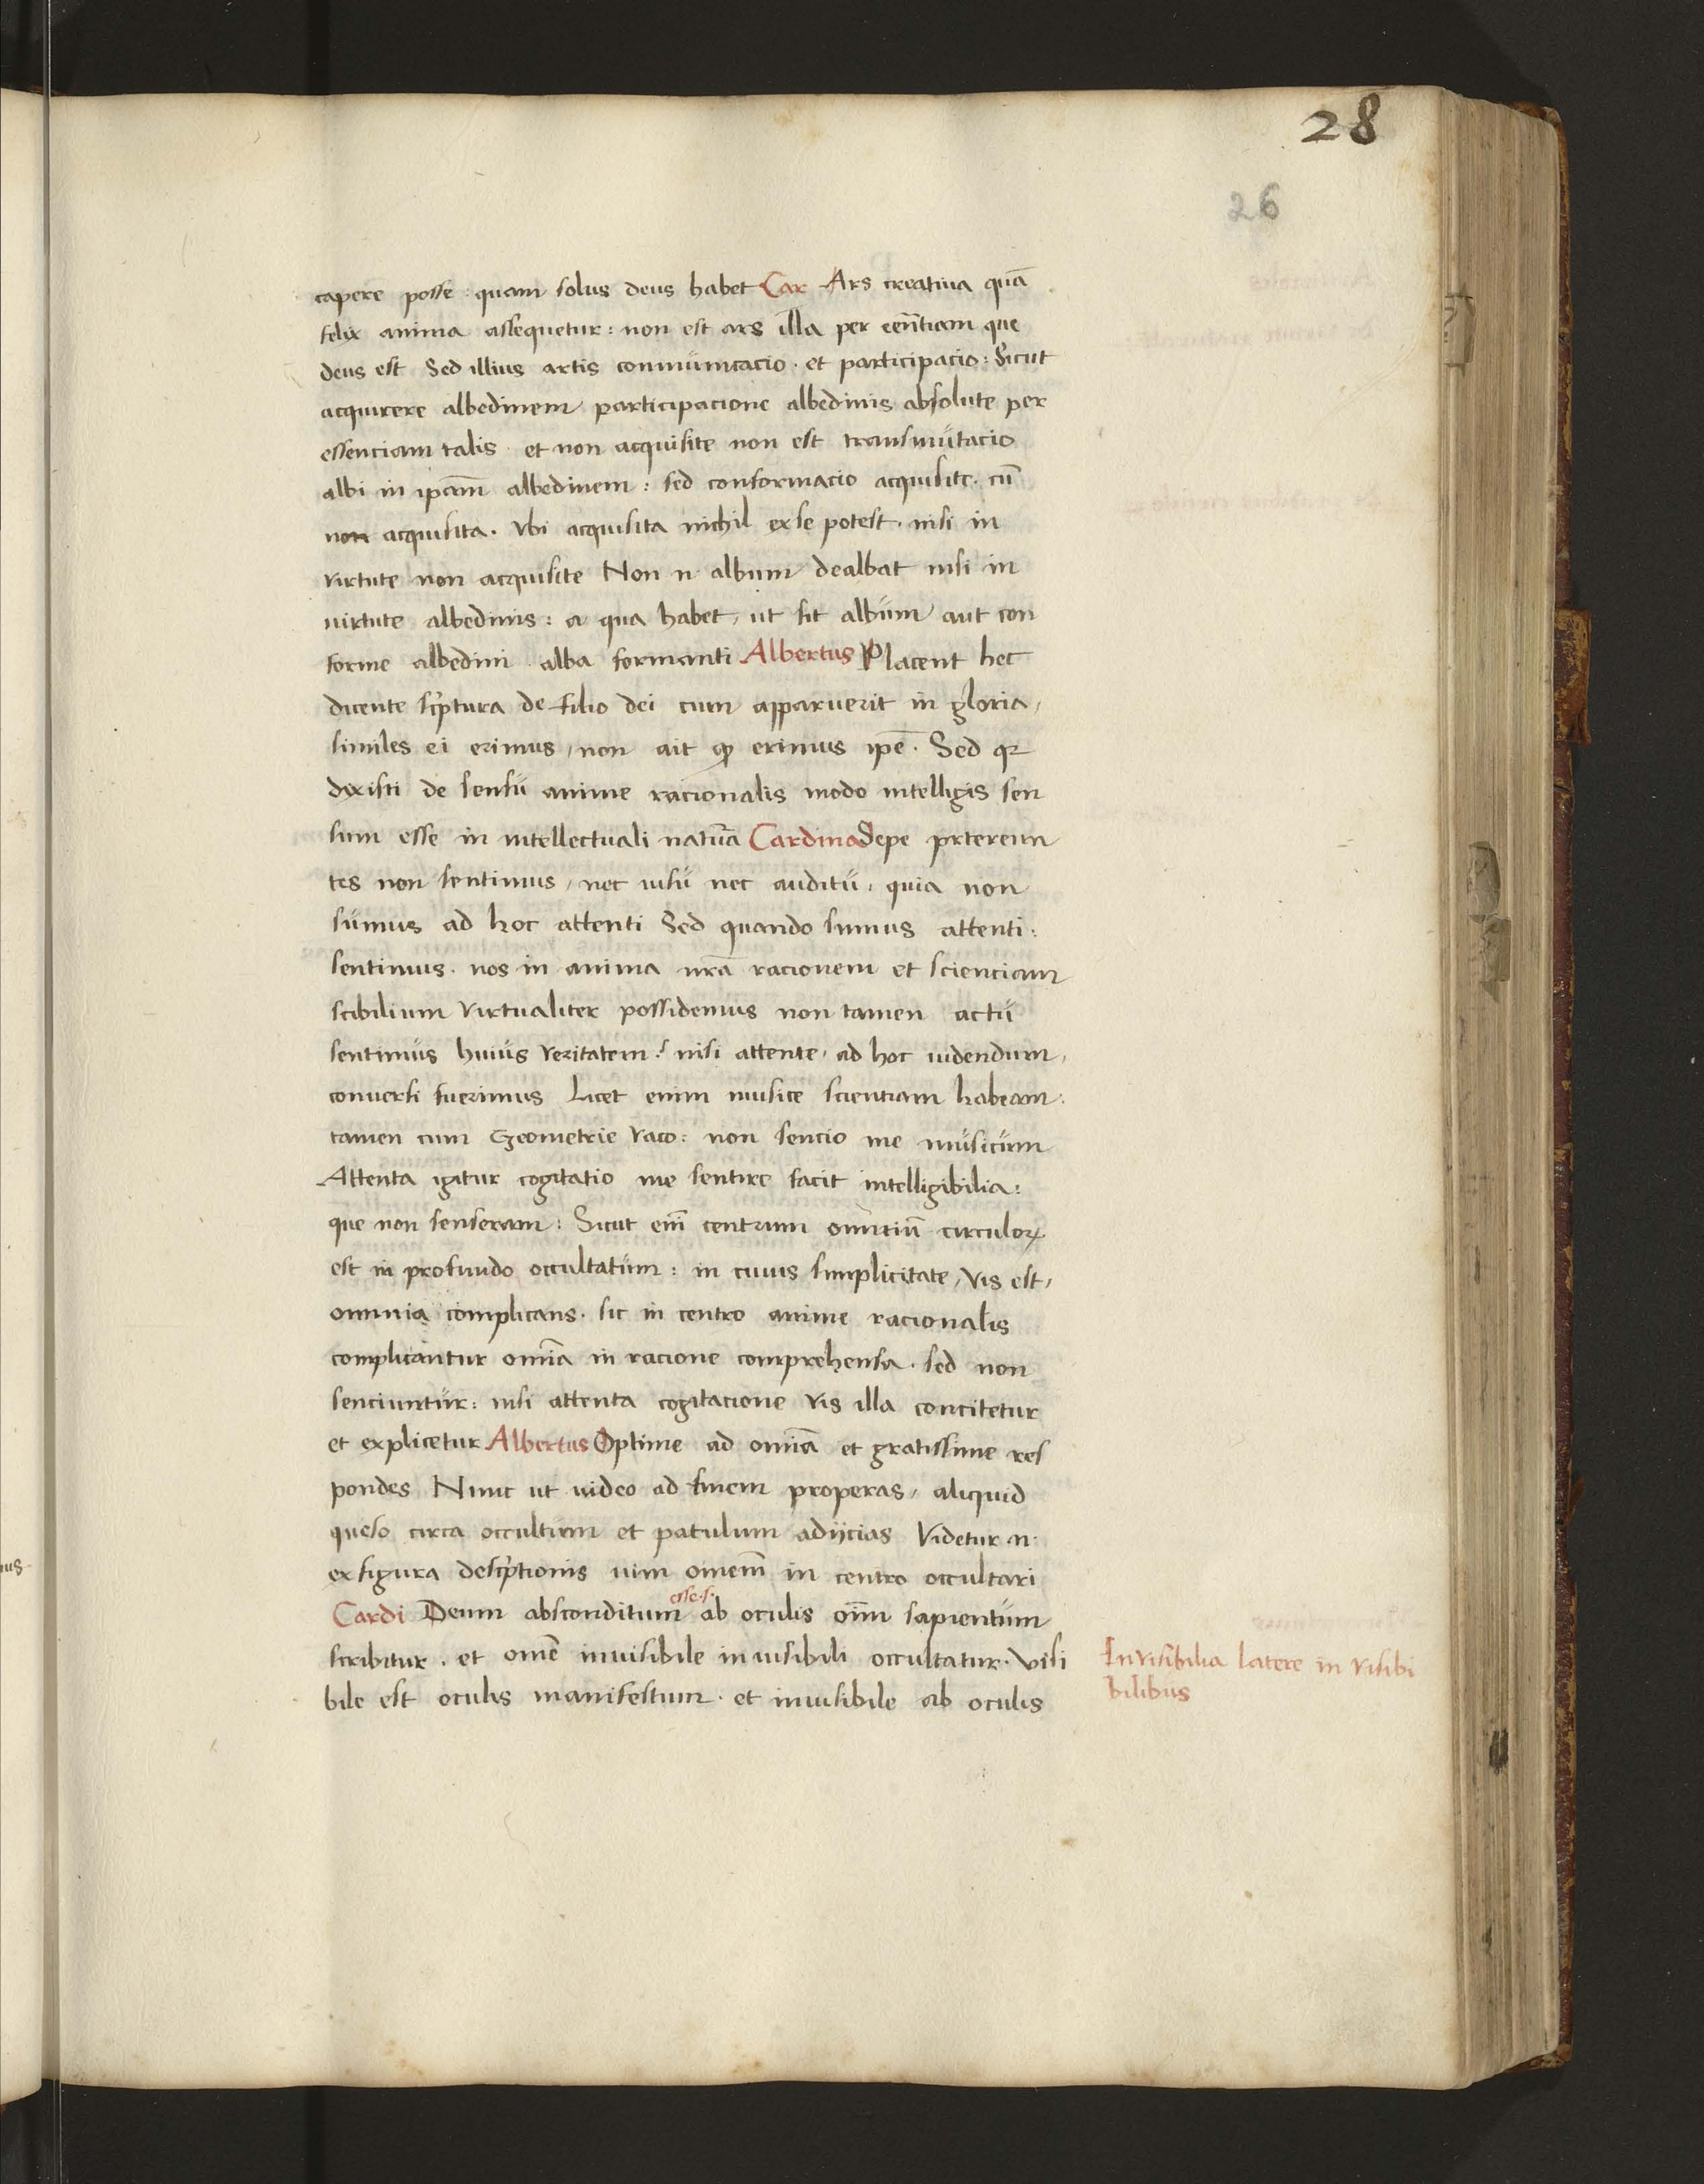 28
26
capere posse : quam solus deus habet Car Ars creatiua quā
felix anima assequetur : non est ars illa per eēntiam que
deus est Sed illius artis conmunicacio · et participacio : Sicut
acquirere albedinem participacione albedinis absolute per
essenciam talis · et non acquisite non est transmutacio
albi in ipām albedinem : sed conformacio acquisite · cū
non acquisita · Vbi acquisita nichil ex se potest · nisi in
virtute non acquisite Non n̄ album dealbat nisi in
uirtute albedinis : a qua habet, ut sit album aut con
forme albedini alba formanti Albertus Placent hec
dicente scͥptura de filio dei cum apparuerit in gloria,
similes ei erimus, non ait ꝙ erimus ipē · Sed qꝛ
dixisti de sensu anime racionalis modo intelligis sen
sum esse in intellectuali natūa Cardina Sepe pr̄tereun
tes non sentimus, nec uisu nec auditu, quia non
sumus ad hoc attenti Sed quando sumus attenti :
sentimus · nos in anima nr̄a racionem et scienciam
scibilium virtualiter possidemus non tamen actu
sentimus huius veritatem : nisi attente, ad hoc uidendum,
conuersi fuerimus Licet enim musice scientiam habeam :
tamen cum Geometrie vaco : non sencio me musicum
Attenta igitur cogitatio me sentire facit intelligibilia :
que non senseram : Sicut em̄ centrum omniū circuloꝝ
est in profundo occultatum : in cuius simplicitate, vis est,
omnia complicans · sic in centro anime racionalis
complicantur omīa in racione comprehensa · sed non
senciuntur : nisi attenta cogitacione vis illa concitetur
et explicetur Albertus Optime ad omīa et gratissime res
pondes Nunc ut uideo ad finem properas, aliquid
queso circa occultum et patulum adijcias Videtur · n ·
ex figura descͥptionis uim omem̄ in centro occultari
esse · s ·
Cardi Deum absconditum ab oculis oīm sapientum
scribitur · et omē inuisibile in uisibili occultatur · visi
bile est oculis manifestum · et inuisibile ab oculis
Invisibilia latere in visibi
bilibus